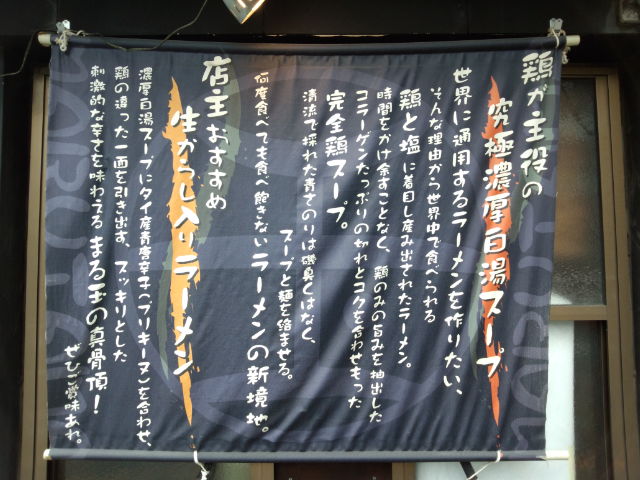 鶏が主役の
究極濃厚白湯スープ
世界に通用するラーメンを作りたい、
そんな理由から世界中で食べられる
鶏と塩に着目し産み出されたラーメン。
時間をかけ余すことなく、鶏のみの旨みを抽出した
コラーゲンたっぷりのキレとコクを合わせもった
完全鶏スープ。
清流で採れた青さのりは磯臭くはなく、
スープと麺を絡ませる。
何度食べても食べ飽きないラーメンの新境地。
店主おすすめ
生からし入りラーメン
濃厚白湯スープにタイ産青唐辛子(プリキーヌ)を合わせ、
鶏の違った一面を引き出す、スッキリとした
刺激的な辛さを味わえるまる玉の真骨頂!
ぜひご賞味あれ。